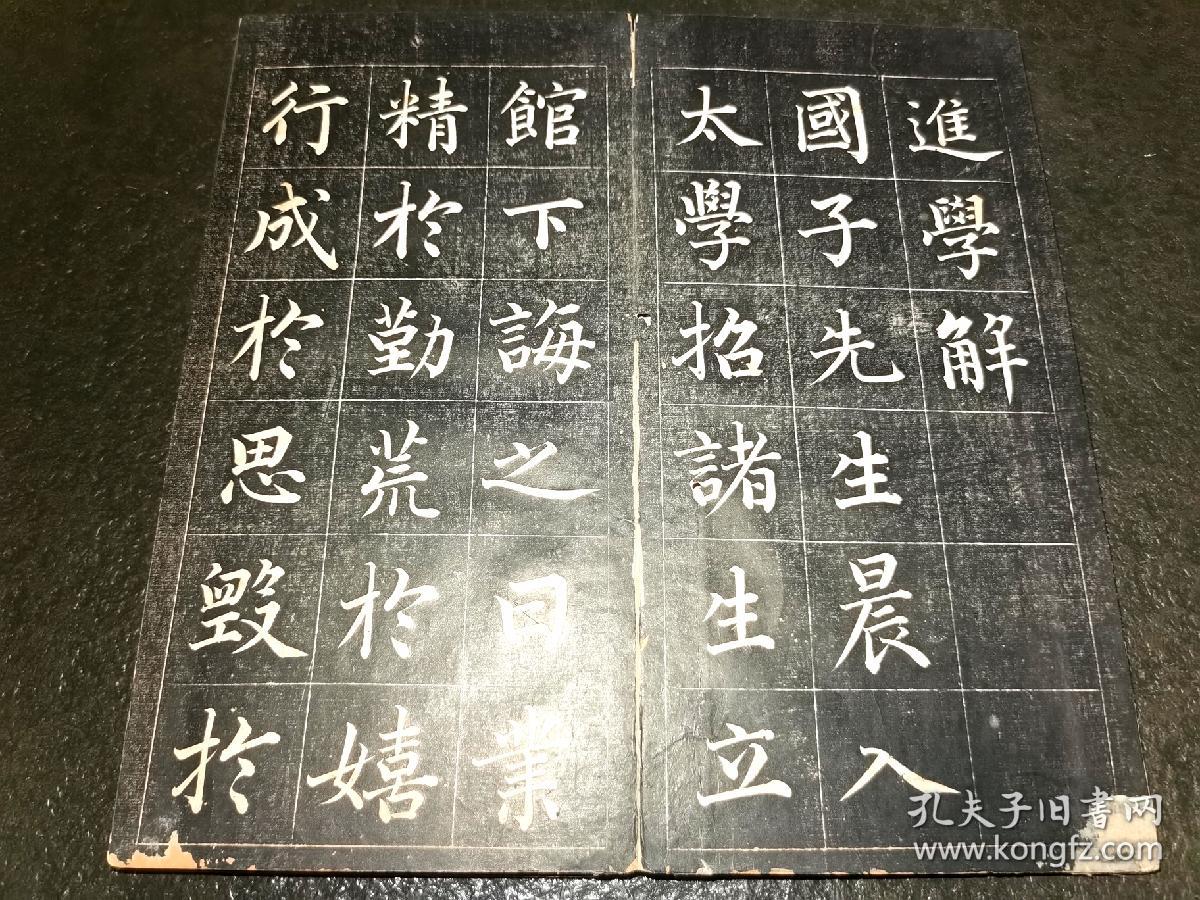 進學解
國子先生晨入
太學招諸生立
館下誨之曰業
精於勤荒於嬉
行成於思毀於
孔夫子旧書网
www.kongfz.com